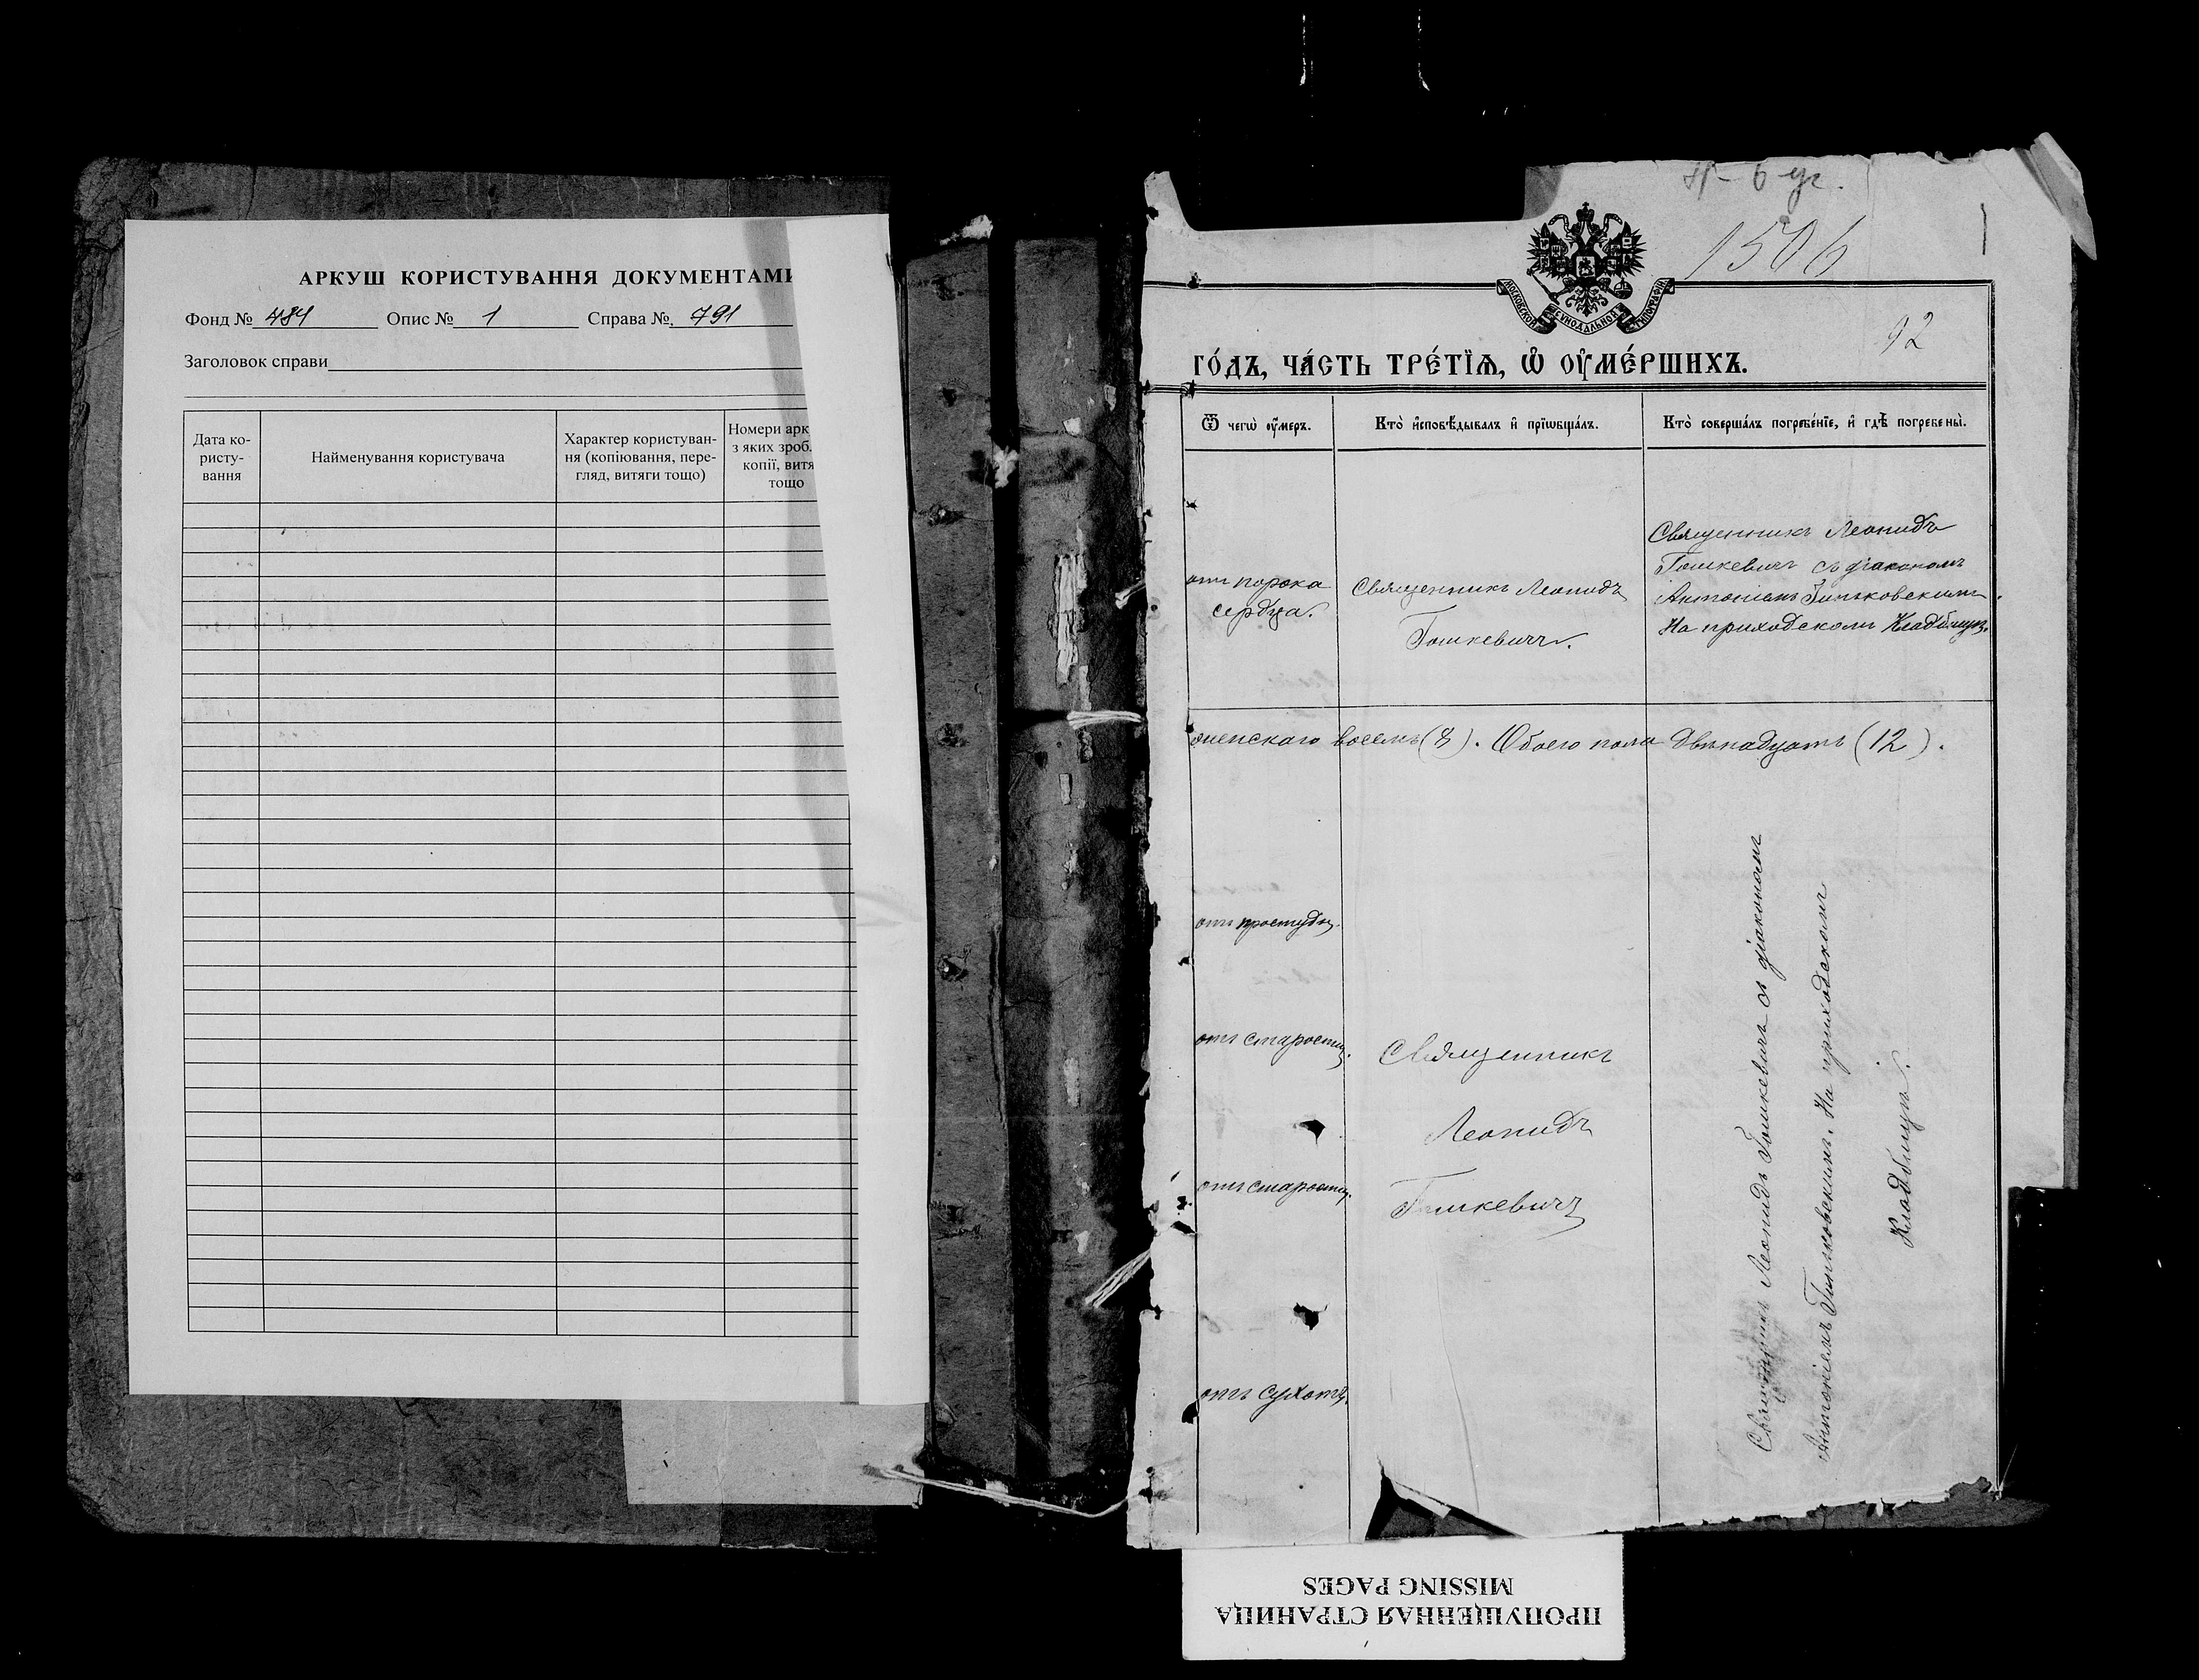 АРКУШ КОРИСТУВАННЯ ДОКУМЕНТАМИ
Фонд № 484 Опис № 1 Справа № 791
Заголовок справи
Дата ко-
ристу-
вання
Найменування користувача
Характер користуван-
ня (копіювання, пере-
гляд, витяги тощо)
Номери арк
з яких зроб.
копії, витя
тощо
1506
92
МОСКОВСКОЙ СѴНОДАЛЬНОЙ ТИПОГРАФІИ
ГО́ДЪ, ЧА́СТЬ ТРЕ́ТЇѦ, Ѡ҆ ОУ҆МЕ́РШИХЪ.
Ѿ чегѡ̀ оу҆́меръ.
Кто̀ и҆сповѣ́дывалъ и҆ прїѡбща́лъ.
Кто̀ соверша́лъ погребе́нїе, и҆ гдѣ̀ погребены̀.
отъ порока
сердца.
Священникъ Леонидъ
Гошкевичъ.
Священникъ Леонидъ
Гошкевичъ съ діакономъ
Антоніемъ Гиньковскимъ.
На приходскомъ кладбищѣ.
женскаго восемь (8). Обоего пола двѣнадцать (12).
отъ простуды.
отъ старости.
отъ старости.
отъ сухотъ.
Священникъ
Леонидъ
Гошкевичъ
Священникъ Леонидъ Гошкевичъ съ діакономъ
Антоніемъ Гиньковскимъ. На приходскомъ
кладбищѣ.
ПРОПУЩЕННАЯ СТРАНИЦА
MISSING PAGES